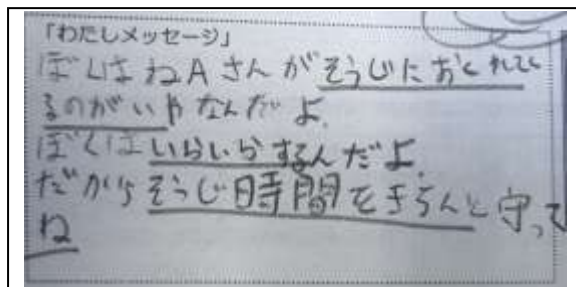 「わたしメッセージ」
ぼくはねAさんがそうじにおくれてく
るのがいやなんだよ.
ぼくはいらいらするんだよ.
だからそうじ時間をきちんと守って
ね